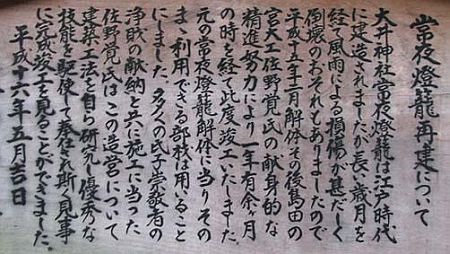 常夜燈籠再建について
大井神社常夜燈籠は江戸時代
に建造されましたが長い歳月を
経て風雨による損傷が甚だしく
倒壊のおそれもありましたので
平成十五年二月解体その後島田の
宮大工佐野覚氏の献身的な
精進努力により一年有余ヶ月
の時を経て此度竣工いたしました
元の常夜燈籠解体に当りその
まゝ利用できる部材は用いること
にしました。多くの氏子崇敬者の
浄財の献納と共に施工に当った
佐野覚氏はこの造営について
建築工法を自ら研究し優秀な
技能を駆使して奉仕され斯く見事
に完成竣工を見ることができました。
平成十六年五月吉日